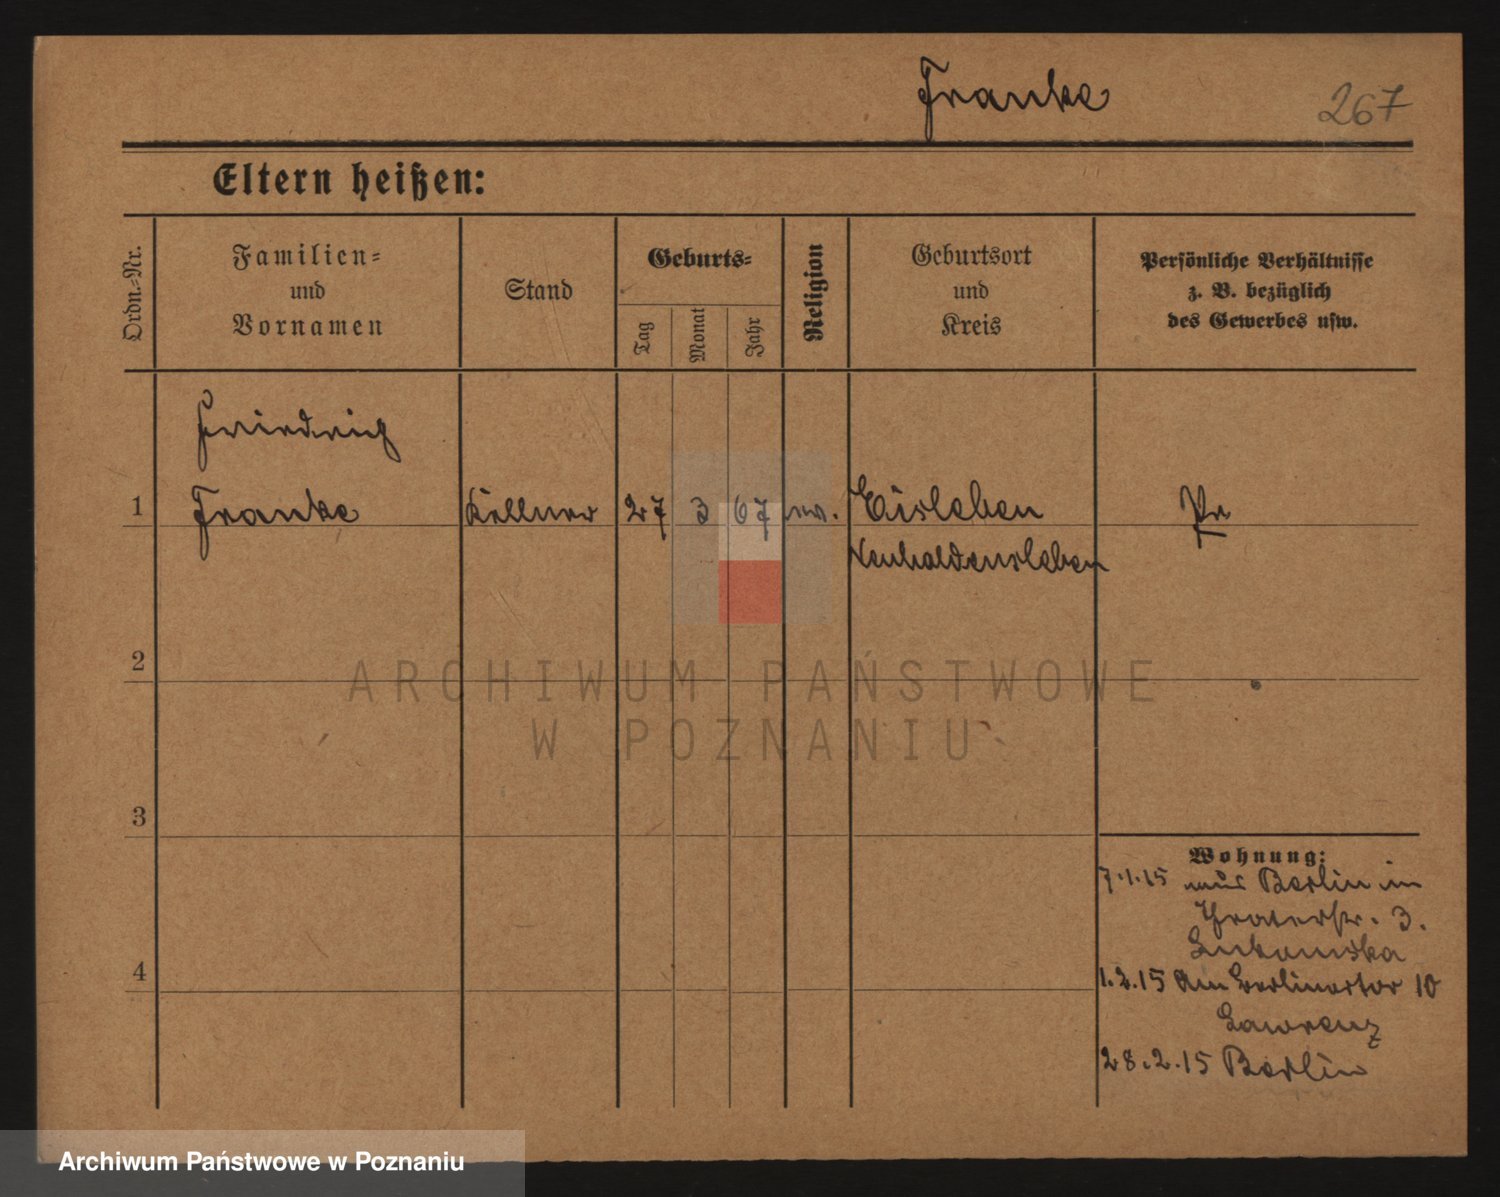 Franke
267
Eltern heißen:
Ordn.-Nr.
Familien-
und
Vornamen
Stand
Geburts-
Tag
Monat
Jahr
Religion
Geburtsort
und
Kreis
Persönliche Verhältnisse
z. B. bezüglich
des Gewerbes usw.
Friedrich
1 Franke Kellner 27 3 67 ev. Eisleben Pr
Neuhaldensleben
2
ARCHIWUM PAŃSTWOWE
W POZNANIU
3
Wohnung:
7.1.15 aus Berlin in
Theaterstr. 3.
4
1.2.15 Am Berlinertor 10
Lawrenz
28.2.15 Berlin
Archiwum Państwowe w Poznaniu